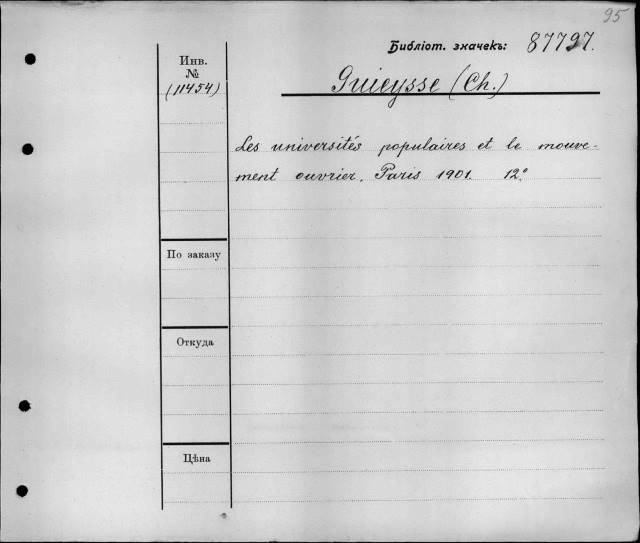 95
Библіот. значекъ: 87727.
Инв.
№
(11454)
Guieysse (Ch.)
Les universités populaires et le mouve-
ment ouvrier. Paris 1901. 12º
По заказу
Откуда
Цѣна